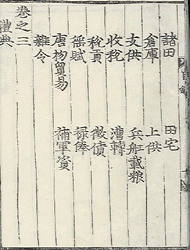 諸田 田宅
倉庫 上供
支供 兵船載粮
收稅 漕轉
稅貢 徵債
徭賦 祿俸
唐物貿易 補軍資
雜令
卷之三
禮典